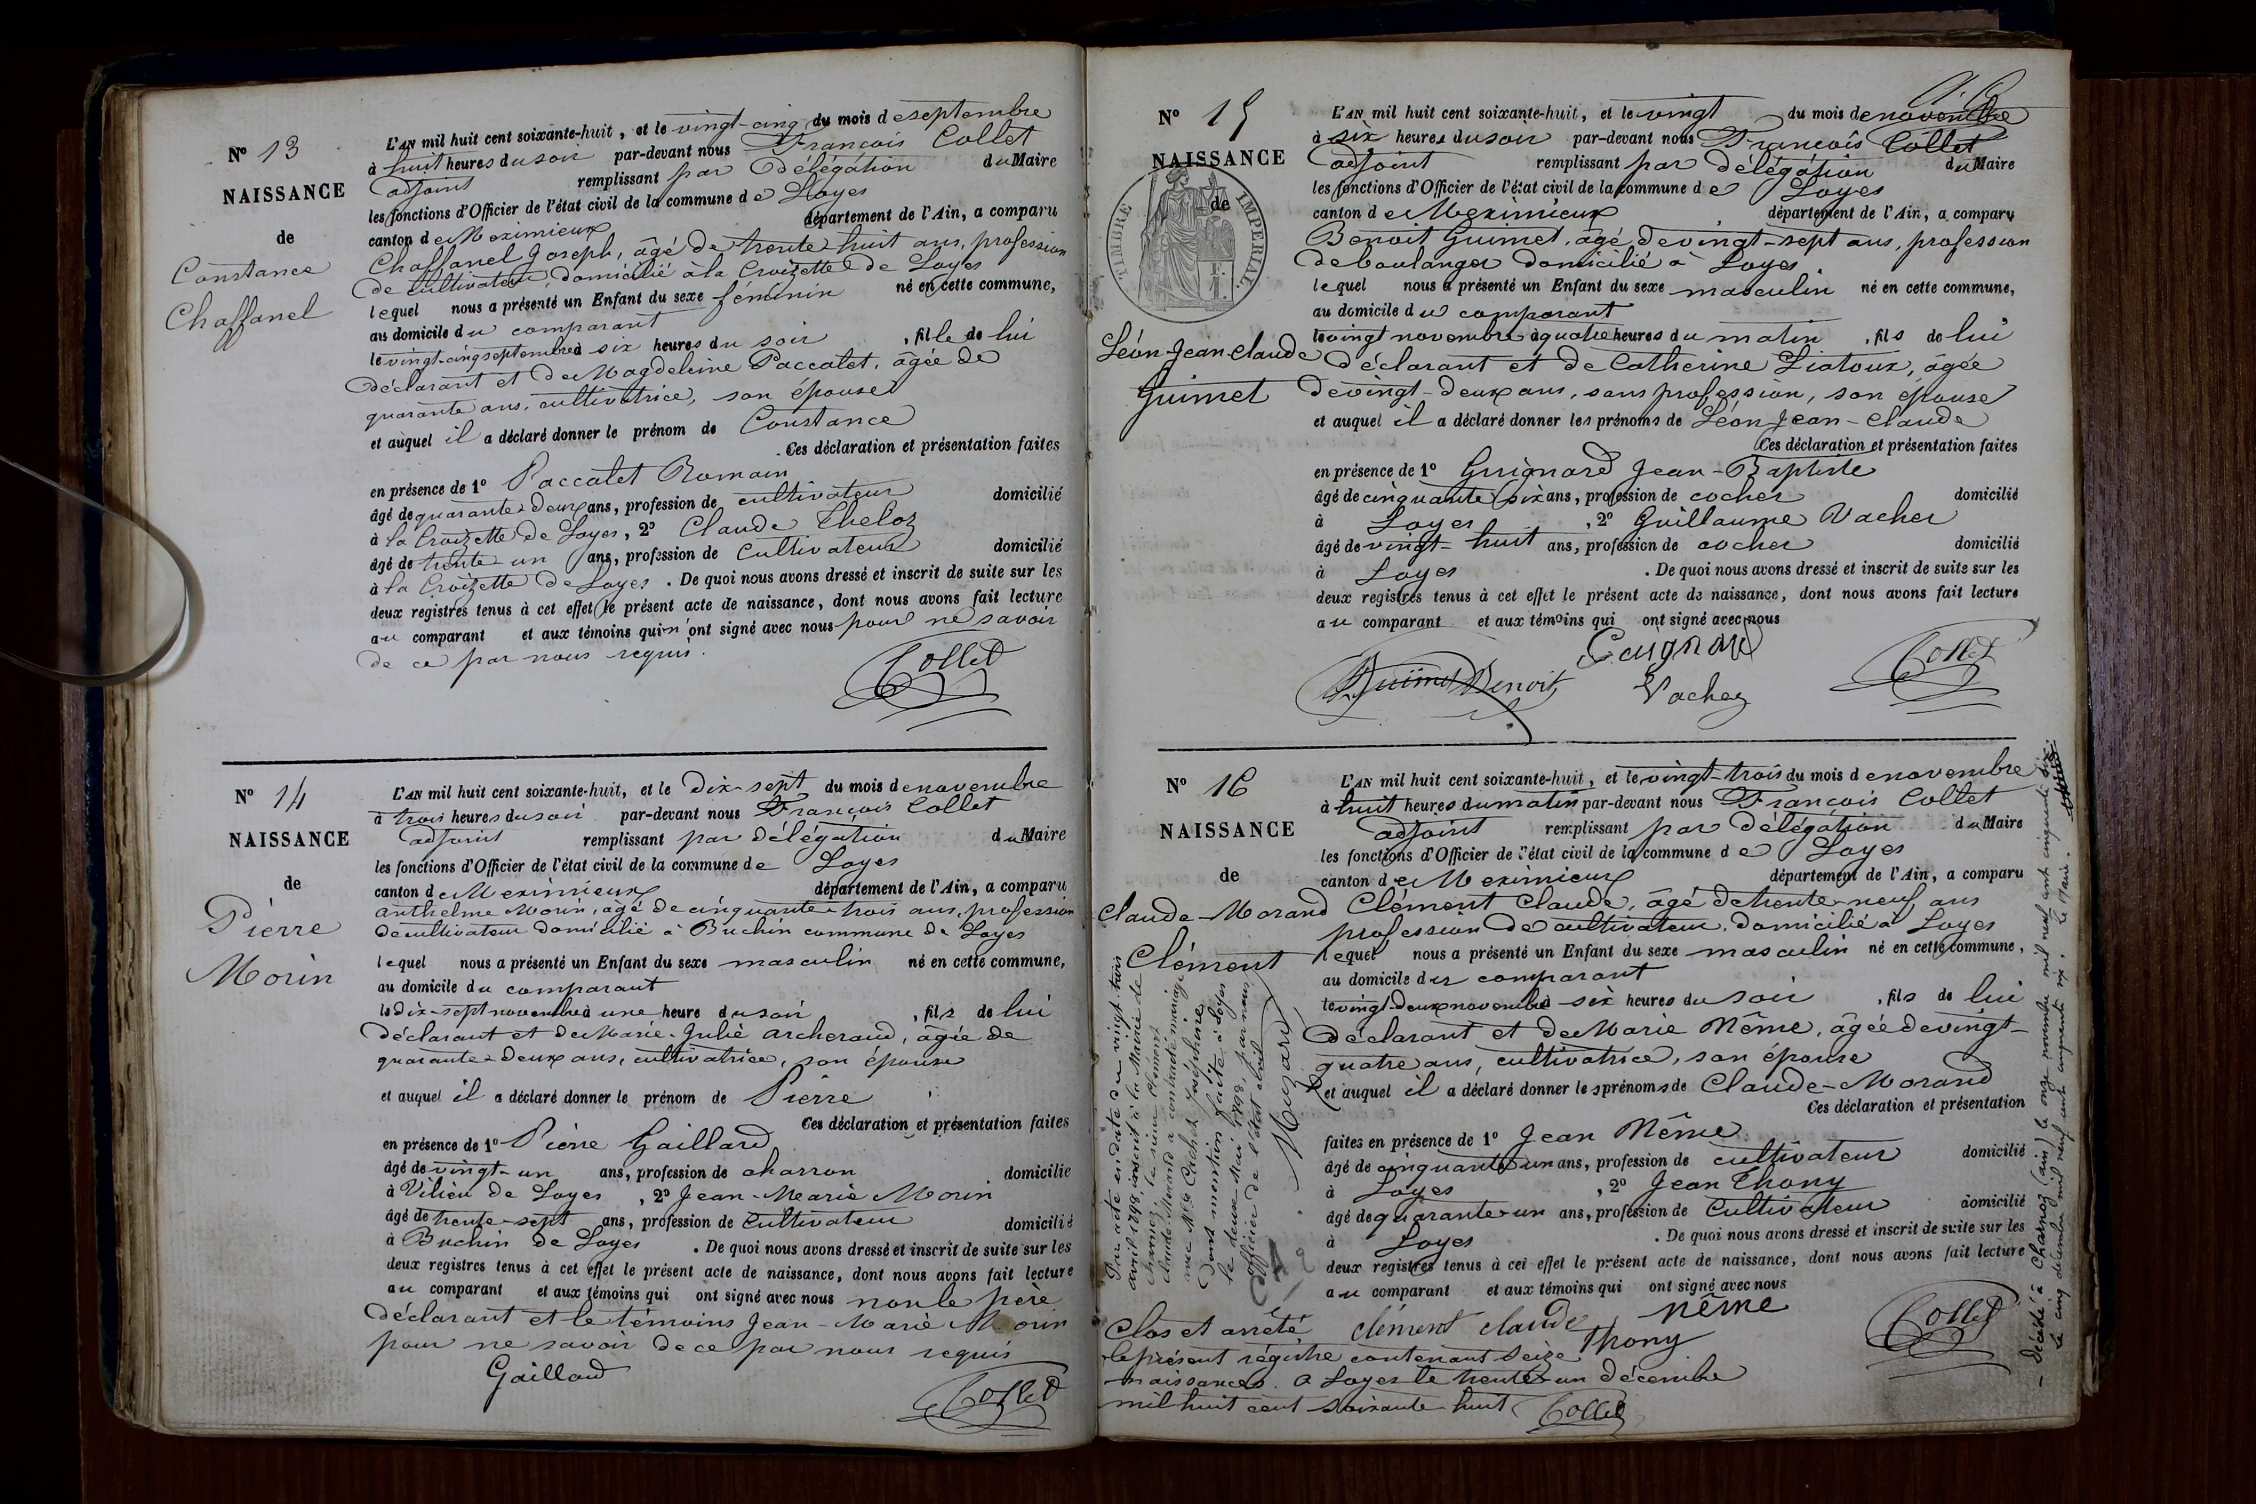 Nº 13
NAISSANCE
de
Constance
Chaffanel
L'AN mil huit cent soixante-huit, et le vingt-cinq du mois de septembre
à huit heures du soir par-devant nous François Collet
adjoint remplissant par délégation du Maire
les fonctions d'Officier de l'état civil de la commune de Loyes
canton de Meximieux département de l'Ain, a comparu
Chaffanel Joseph, âgé de trente-huit ans, profession
de cultivateur, domicilié à la Croizette de Loyes
lequel nous a présenté un Enfant du sexe féminin né en cette commune,
au domicile du comparant
le vingt-cinq septembre à six heures du soir, fille de lui
déclarant et de Magdeleine Paccalet, âgée de
quarante ans, cultivatrice, son épouse
et auquel il a déclaré donner le prénom de Constance
Ces déclaration et présentation faites
en présence de 1º Paccalet Romain
âgé de quarante-deux ans, profession de cultivateur domicilié
à la Croizette de Loyes, 2º Claude Theloz
âgé de trente-un ans, profession de cultivateur domicilié
à la Croizette de Loyes. De quoi nous avons dressé et inscrit de suite sur les
deux registres tenus à cet effet le présent acte de naissance, dont nous avons fait lecture
au comparant et aux témoins qui n'ont signé avec nous pour ne savoir
de ce par nous requis.
Collet
Nº 14
NAISSANCE
de
Pierre
Morin
L'AN mil huit cent soixante-huit, et le dix-sept du mois de novembre
à trois heures du soir par-devant nous François Collet
adjoint remplissant par délégation du Maire
les fonctions d'Officier de l'état civil de la commune de Loyes
canton de Meximieux département de l'Ain, a comparu
anthelme Morin, âgé de cinquante-trois ans, profession
de cultivateur domicilié à Buchin commune de Loyes
lequel nous a présenté un Enfant du sexe masculin né en cette commune,
au domicile du comparant
le dix-sept novembre à une heure du soir, fils de lui
déclarant et de Marie-Julie archeraud, âgée de
quarante-deux ans, cultivatrice, son épouse
et auquel il a déclaré donner le prénom de Pierre
Ces déclaration et présentation faites
en présence de 1º Pierre Gaillard
âgé de vingt-un ans, profession de charron domicilié
à Vilieu de Loyes, 2º Jean-Marie Morin
âgé de trente-sept ans, profession de cultivateur domicilié
à Buchin de Loyes. De quoi nous avons dressé et inscrit de suite sur les
deux registres tenus à cet effet le présent acte de naissance, dont nous avons fait lecture
au comparant et aux témoins qui ont signé avec nous non le père
déclarant et le témoins Jean-Marie Morin
pour ne savoir de ce par nous requis
Gaillard
Collet
Nº 15
NAISSANCE
de
TIMBRE IMPERIAL
Léon-Jean-Claude
Guimet
L'AN mil huit cent soixante-huit, et le vingt du mois de novembre
à six heures du soir par-devant nous François Collet
adjoint remplissant par délégation du Maire
les fonctions d'Officier de l'état civil de la commune de Loyes
canton de Meximieux département de l'Ain, a comparu
Benoit Guimet, âgé de vingt-sept ans, profession
de boulanger domicilié à Loyes
lequel nous a présenté un Enfant du sexe masculin né en cette commune,
au domicile du comparant
le vingt novembre à quatre heures du matin, fils de lui
déclarant et de Catherine Liatoux, âgée
de vingt-deux ans, sans profession, son épouse
et auquel il a déclaré donner les prénoms de Léon-Jean-Claude
Ces déclaration et présentation faites
en présence de 1º Guignard Jean-Baptiste
âgé de cinquante six ans, profession de cocher domicilié
à Loyes, 2º Guillaume Vacher
âgé de vingt-huit ans, profession de cocher domicilié
à Loyes. De quoi nous avons dressé et inscrit de suite sur les
deux registres tenus à cet effet le présent acte de naissance, dont nous avons fait lecture
au comparant et aux témoins qui ont signé avec nous
Guignard
Guimet Benoit
Vacher
Collet
Nº 16
NAISSANCE
de
Claude-Morand
Clément
L'AN mil huit cent soixante-huit, et le vingt-trois du mois de novembre
à huit heures du matin par-devant nous François Collet
adjoint remplissant par délégation du Maire
les fonctions d'Officier de l'état civil de la commune de Loyes
canton de Meximieux département de l'Ain, a comparu
Clément Claude, âgé de trente-neuf ans
profession de cultivateur, domicilié à Loyes
lequel nous a présenté un Enfant du sexe masculin né en cette commune,
au domicile du comparant
le vingt-deux novembre à six heures du soir, fils de lui
déclarant et de Marie Même, âgée de vingt-
quatre ans, cultivatrice, son épouse
et auquel il a déclaré donner les prénoms de Claude-Morand
Ces déclaration et présentation
faites en présence de 1º Jean Même
âgé de cinquante-un ans, profession de cultivateur domicilié
à Loyes, 2º Jean Thony
âgé de quarante-un ans, profession de Cultivateur domicilié
à Loyes. De quoi nous avons dressé et inscrit de suite sur les
deux registres tenus à cet effet le présent acte de naissance, dont nous avons fait lecture
au comparant et aux témoins qui ont signé avec nous
clément claude même
Thony
Collet
Par acte en date du vingt trois
avril 1898, inscrit à la Mairie de
Charnoz, le sieur Clément
Claude Morand a contracté mariage
avec Mlle Josephine
Dont mention faite à Loyes
le deux Mai 1898, par nous,
Officier de l'état civil
- Décédé à Charnoz (ain) le onze novembre mil neuf cent cinquante six.
Le cinq décembre mil neuf cent cinquante six. Le Maire.
Clos et arrêté
le présent régistre contenant seize
naissances. à Loyes le trente-un décembre
mil huit cent soixante huit
Collet